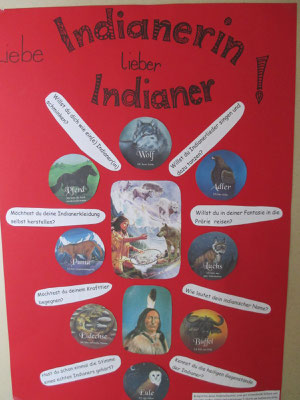 Liebe
Indianerin
Lieber
Indianer!
Willst du dich wie ein(e) Indianer(in)
schminken?
Willst du Indianerlieder singen und
dazu tanzen?
Wolf
Pferd
Adler
Möchtest du deine Indianerkleidung
selbst herstellen?
Willst du in deiner Fantasie in die
Prärie reisen?
Puma
Luchs
Möchtest du deinem Krafttier
begegnen?
Wie lautet dein indianischer Name?
Eidechse
Büffel
Hast du schon einmal die Stimme
eines echten Indianers gehört?
Kennst du die heiligen Gegenstände
der Indianer?
Eule